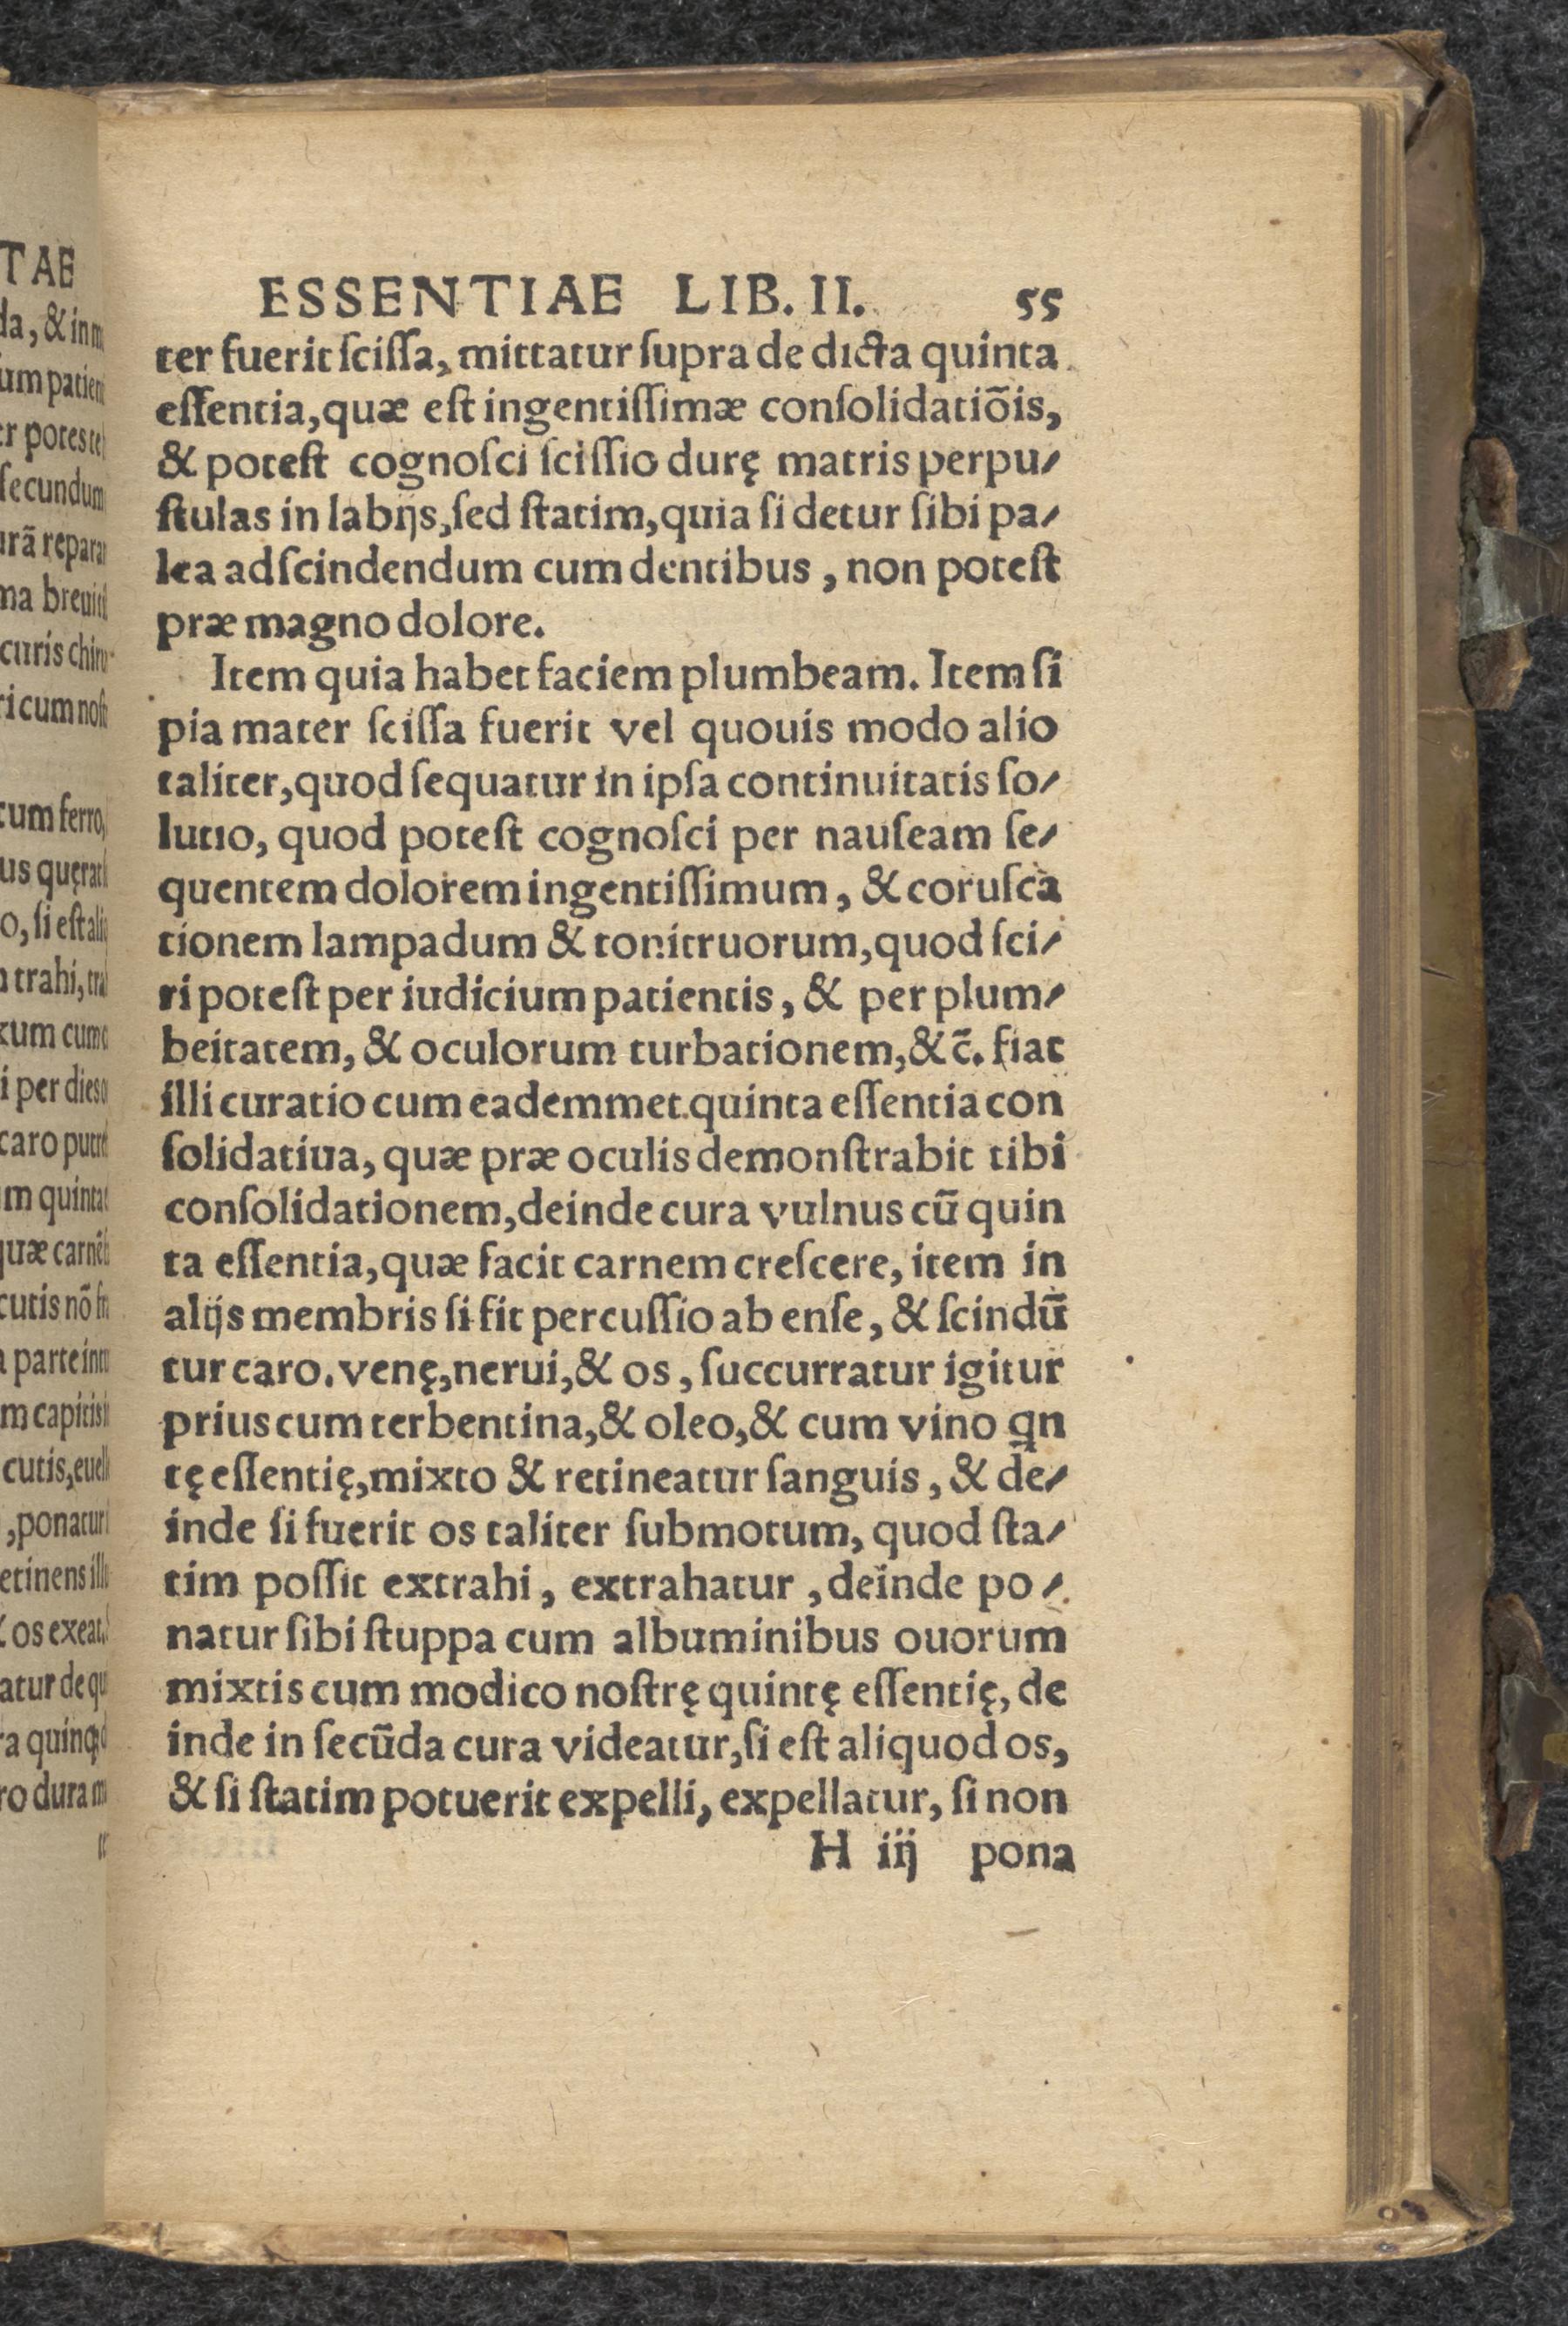 ESSENTIAE LIB. II. 55
ter fuerit ſciſſa, mittatur ſupra de dicta quinta
eſſentia, quæ eſt ingentiſſimæ conſolidatiõis,
& poteſt cognoſci ſciſſio durę matris perpu-
ſtulas in labijs, ſed ſtatim, quia ſi detur ſibi pa-
lea adſcindendum cum dentibus, non poteſt
præ magno dolore.
Item quia habet faciem plumbeam. Item ſi
pia mater ſciſſa fuerit vel quouis modo alio
taliter, quod ſequatur in ipſa continuitatis ſo-
lutio, quod poteſt cognoſci per nauſeam ſe-
quentem dolorem ingentiſſimum, & coruſca
tionem lampadum & tonitruorum, quod ſci-
ri poteſt per iudicium patientis, & per plum-
beitatem, & oculorum turbationem, &c̃. fiat
illi curatio cum eademmet quinta eſſentia con
ſolidatiua, quæ præ oculis demonſtrabit tibi
conſolidationem, deinde cura vulnus cũ quin
ta eſſentia, quæ facit carnem creſcere, item in
alijs membris ſi fit percuſſio ab enſe, & ſcindũ
tur caro. venę, nerui, & os, ſuccurratur igitur
prius cum terbentina, & oleo, & cum vino q̃n
tę eſſentię, mixto & retineatur ſanguis, & de-
inde ſi fuerit os taliter ſubmotum, quod ſta-
tim poſſit extrahi, extrahatur, deinde po-
natur ſibi ſtuppa cum albuminibus ouorum
mixtis cum modico noſtrę quintę eſſentię, de
inde in ſecũda cura videatur, ſi eſt aliquod os,
& ſi ſtatim potuerit expelli, expellatur, ſi non
H iij pona